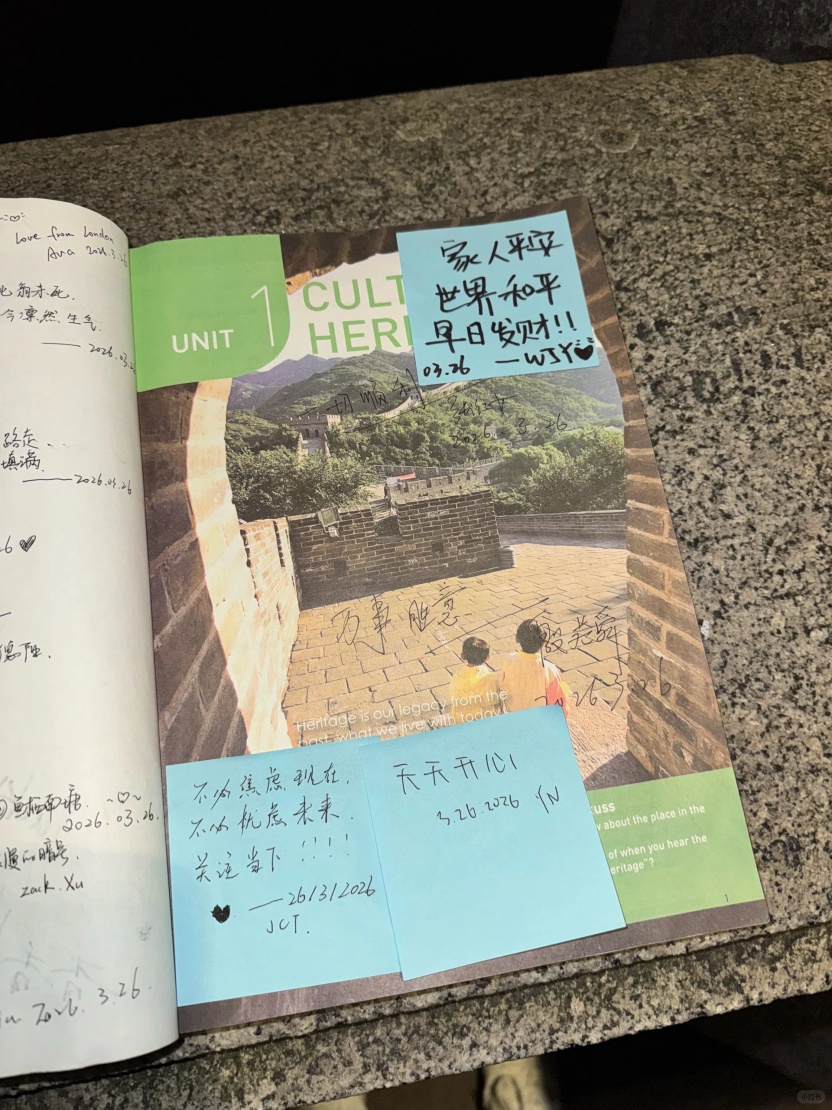 Love from London
Ava 2026.3.26
今凛然生气
—— 2026.03.2
路走...
填满.
——2026.03.26
6
2026.03.26.
暗号.
zack.Xu
2026. 3.26.
UNIT 1
CULT
HERI
家人平安
世界和平
早日发财!!
03.26 —WJY
一切顺利
2026.3.26
万事胜意
2026.3.26
Heritage is our legacy from the
past, what we live with today
不必焦虑现在,
不必忧虑未来.
关注当下!!!!
——26/3/2026
JCT.
天天开心
3.26.2026 YN
cuss
y about the place in the
of when you hear the
eritage"?
1
小红书